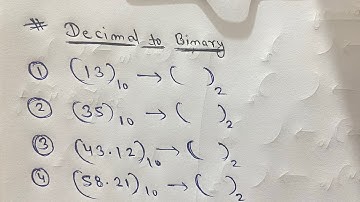 # Decimal to Binary
① (13)₁₀ → ( )₂
② (35)₁₀ → ( )₂
③ (43.12)₁₀ → ( )₂
④ (58.21)₁₀ → ( )₂